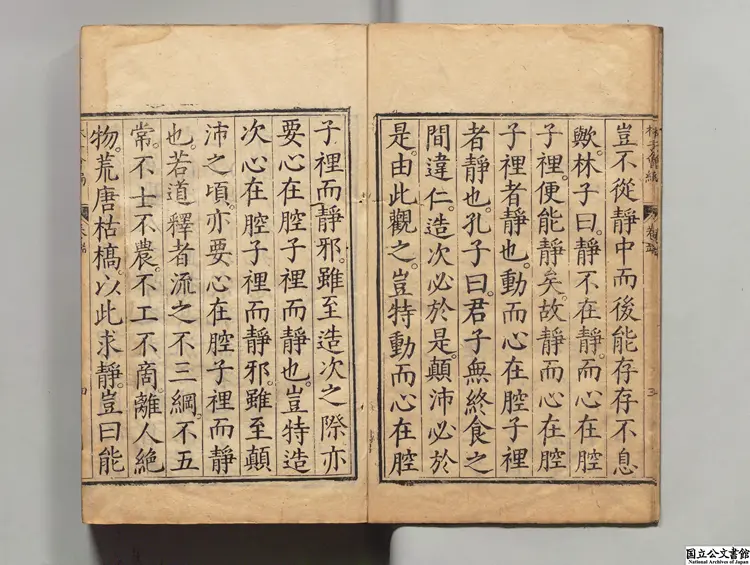 豈不從靜中而後能存存不息
歟。林子曰。靜不在靜。而心在腔
子裡。便能靜矣。故靜而心在腔
子裡者靜也。動而心在腔子裡
者靜也。孔子曰。君子無終食之
間違仁。造次必於是。顛沛必於
是。由此觀之。豈特動而心在腔
子裡而靜邪。雖至造次之際。亦
要心在腔子裡而靜也。豈特造
次心在腔子裡而靜邪。雖至顛
沛之頃。亦要心在腔子裡而靜
也。若道釋者流之不三綱。不五
常。不士不農。不工不商。離人絶
物。荒唐枯槁。以此求靜。豈曰能
国立公文書館
National Archives of Japan